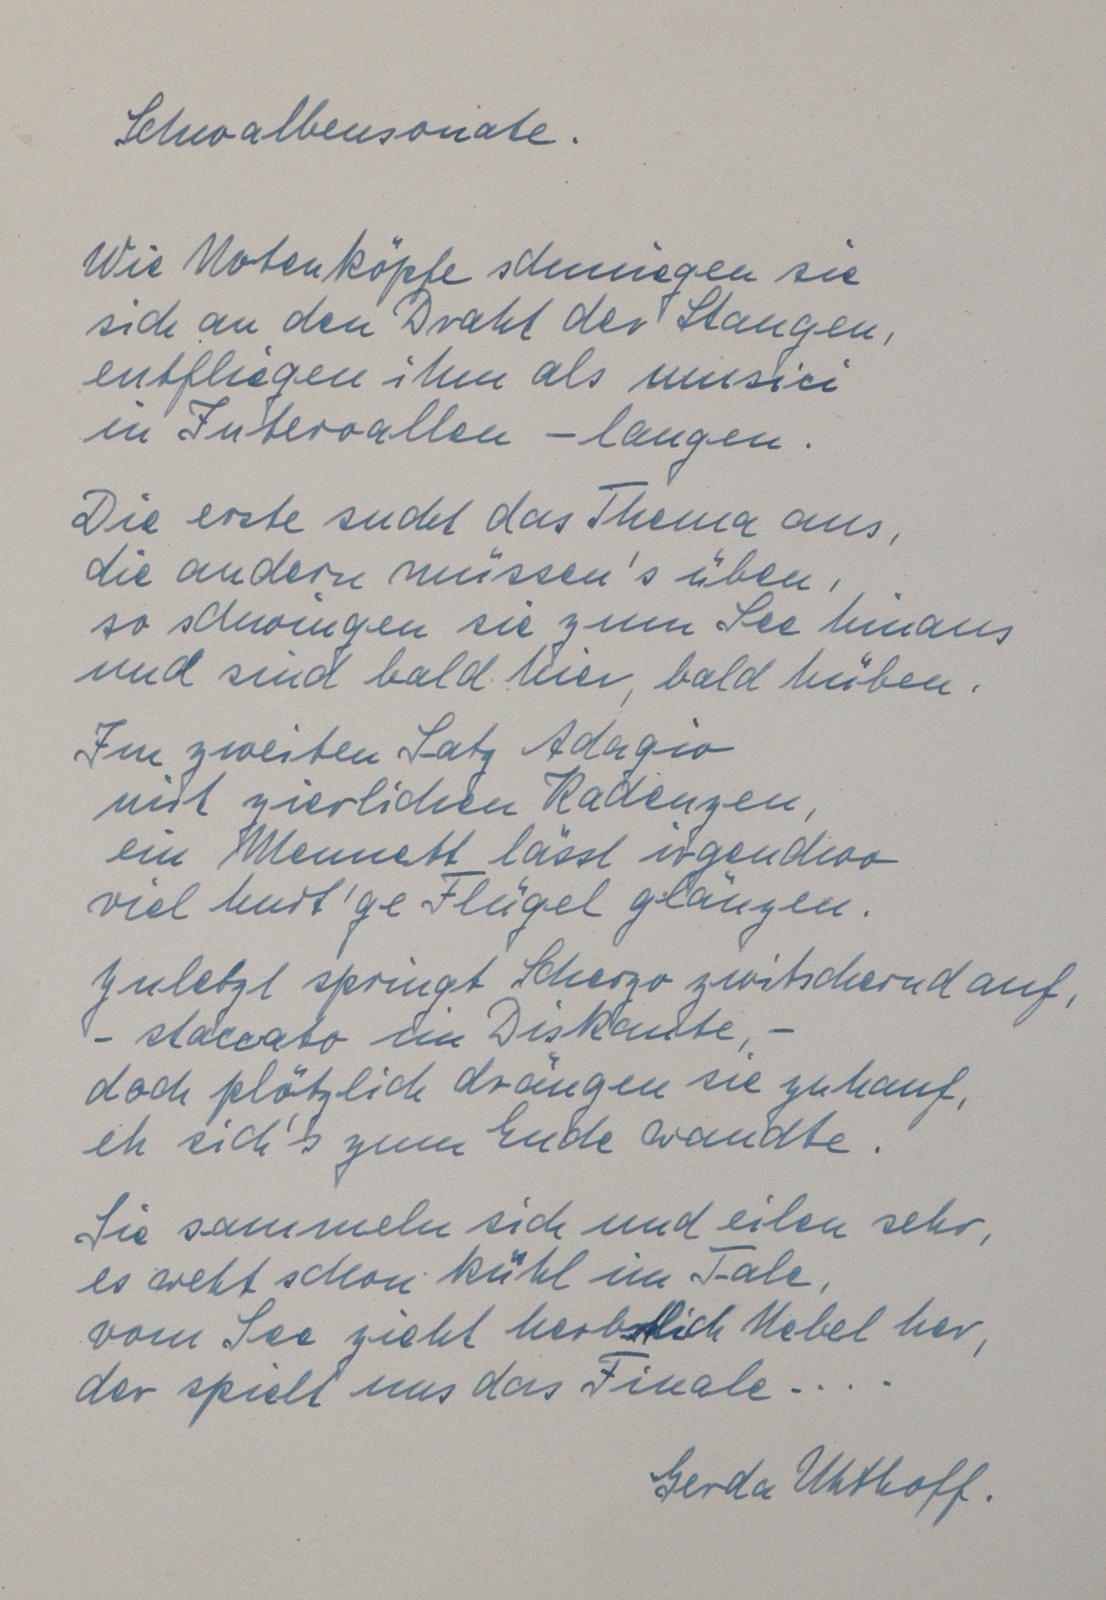 Schwalbensonate.
Wie Notenköpfe schmiegen sie
sich an den Draht der Stangen,
entfliegen ihm als musici
in Intervallen – langen.
Die erste sucht das Thema aus,
die andern müssen's üben,
so schwingen sie zum See hinaus
und sind bald hier, bald hüben.
Im zweiten Satz Adagio
mit zierlichen Kadenzen,
ein Menuett lässt irgendwo
viel hurt'ge Flügel glänzen.
Zuletzt springt Scherzo zwitschernd auf,
- staccato im Diskante, -
doch plötzlich drängen sie zuhauf,
eh sich's zum Ende wandte.
Sie sammeln sich und eilen sehr,
es weht schon kühl im Tale,
vom See zieht herbstlich Nebel her,
der spielt uns das Finale ....
Gerda Uhthoff.